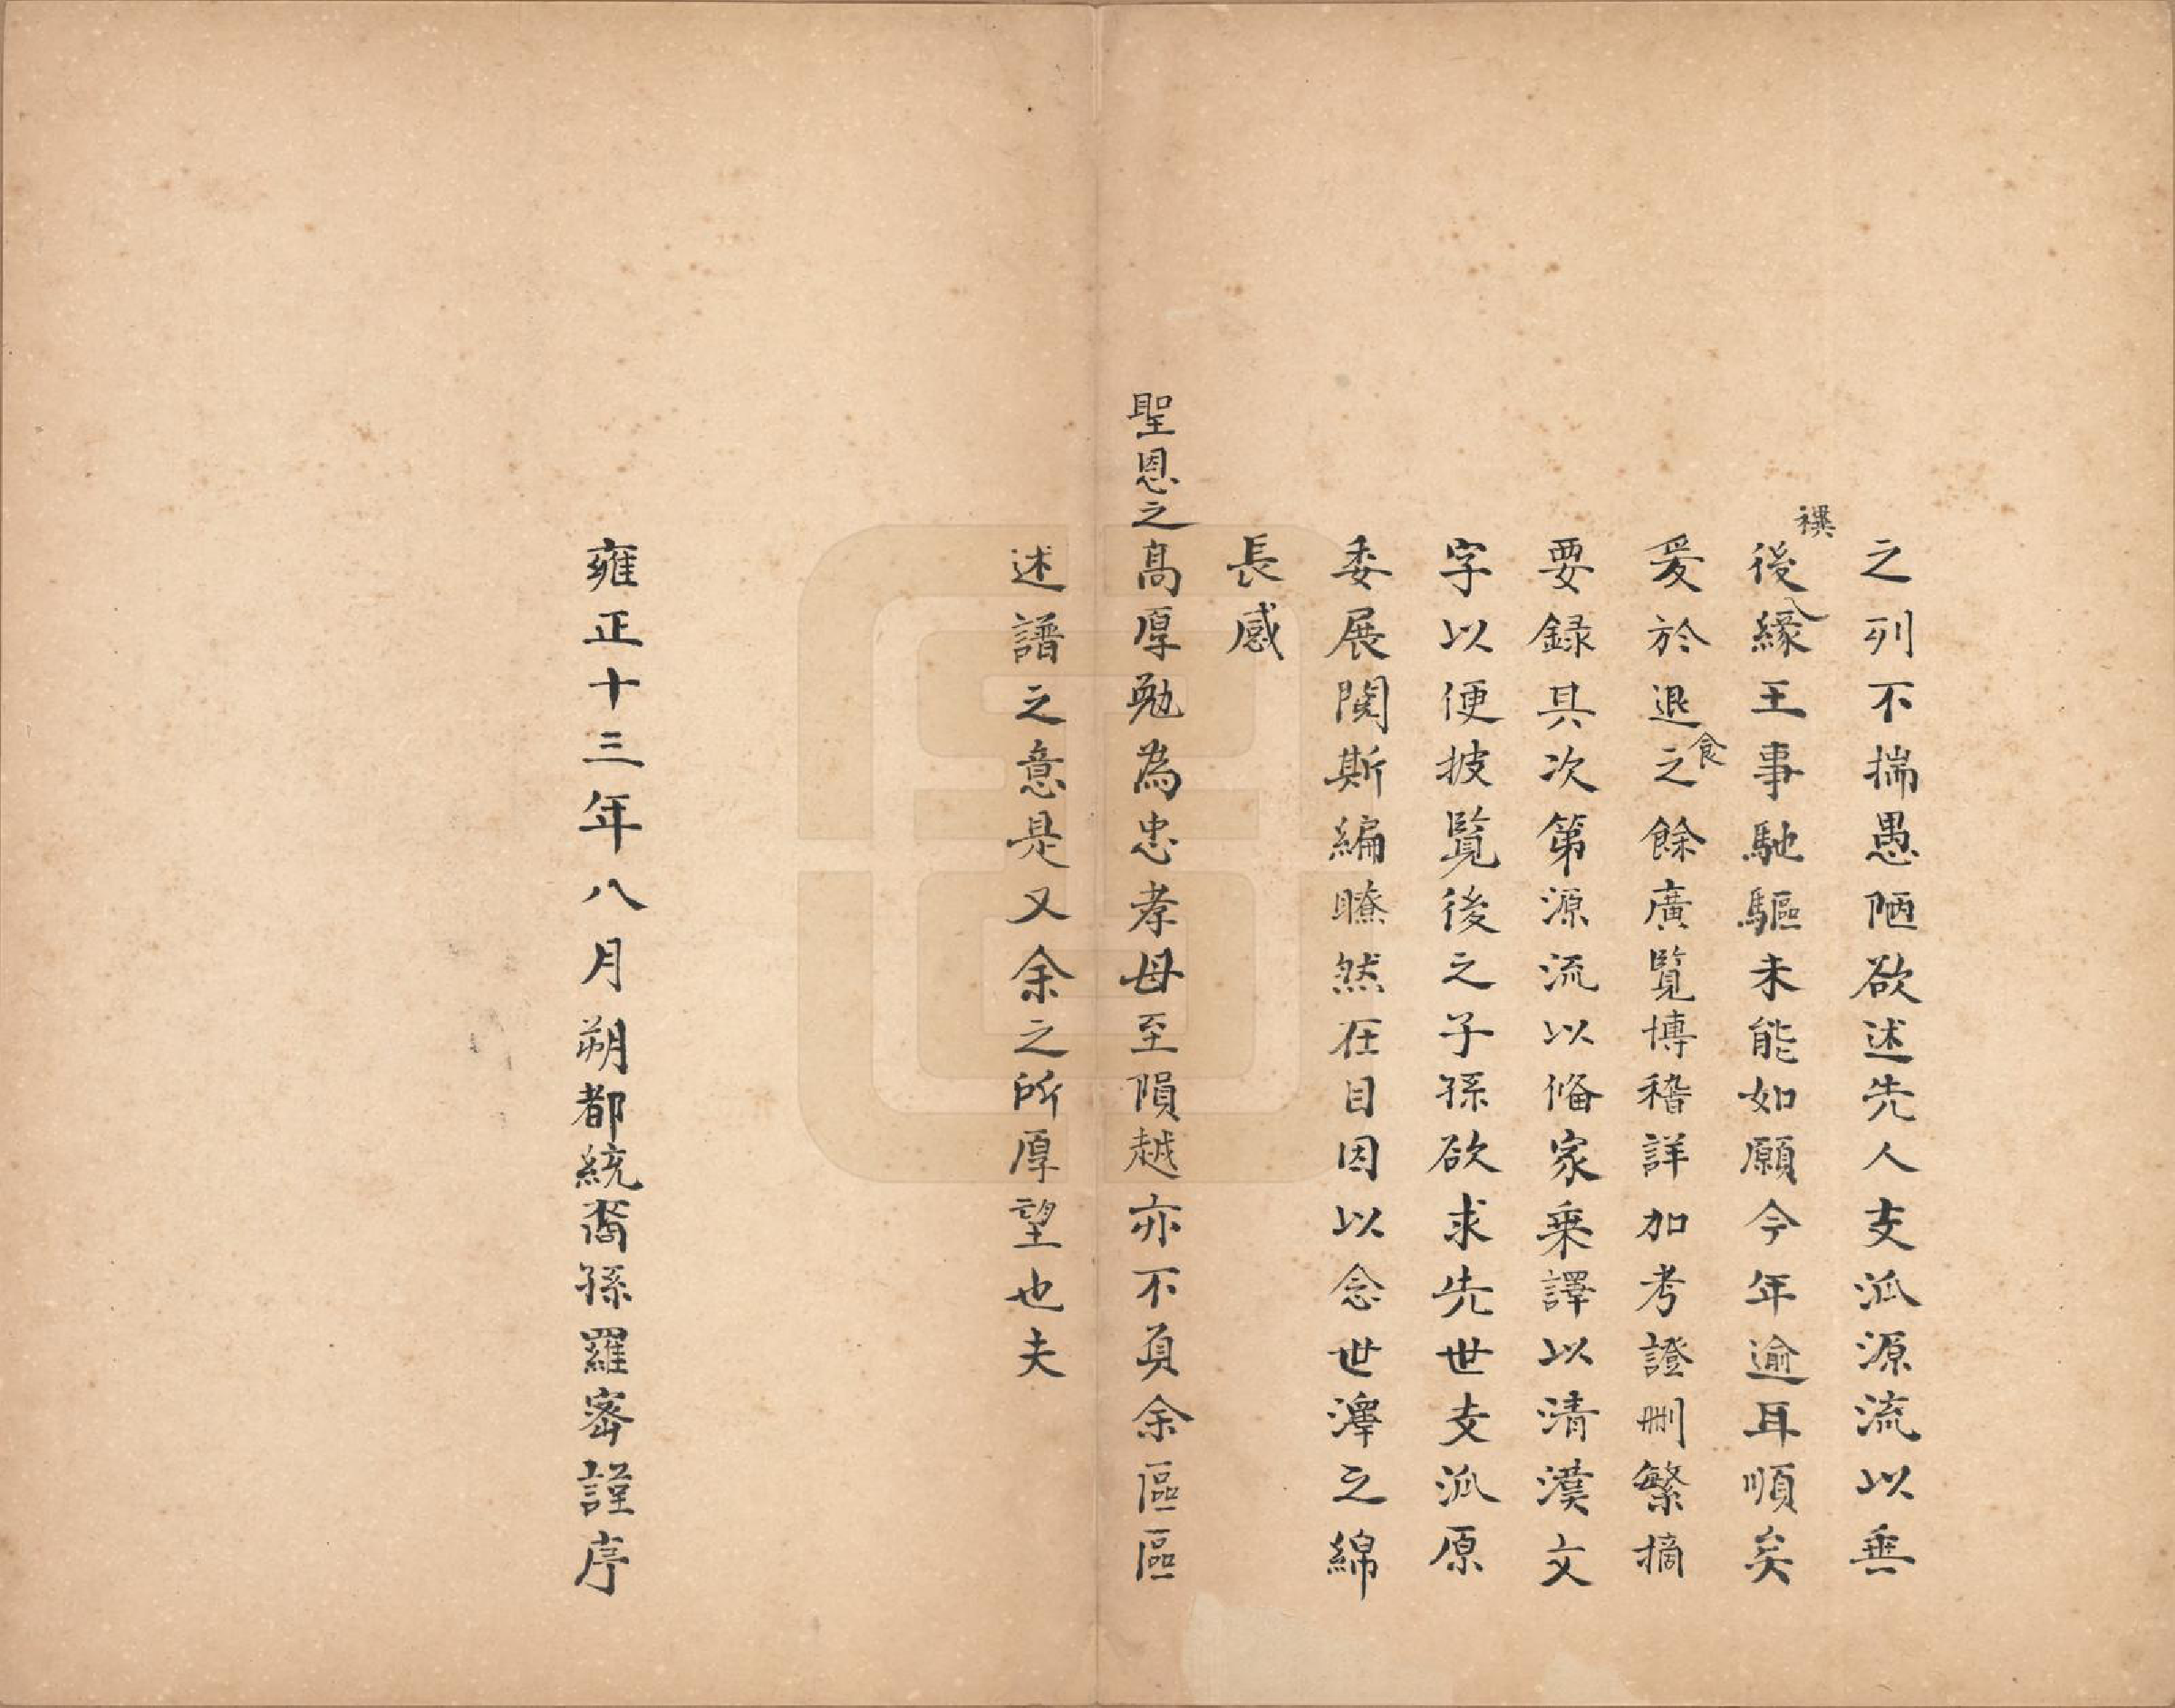 之列不揣愚陋欲述先人支派源流以垂
後禩緣王事馳驅未能如願今年逾耳順矣
爰於退食之餘廣覽博稽詳加考證删繁摘
要録具次第源流以俻家乗譯以清漢文
字以便披覽後之子孫欲求先世支派原
委展閱斯編瞭然在目因以念世澤之綿
長感
聖恩之髙厚勉為忠孝毋至隕越亦不負余區區
述譜之意是又余之所厚望也夫
雍正十三年八月朔都統裔孫羅宻謹序